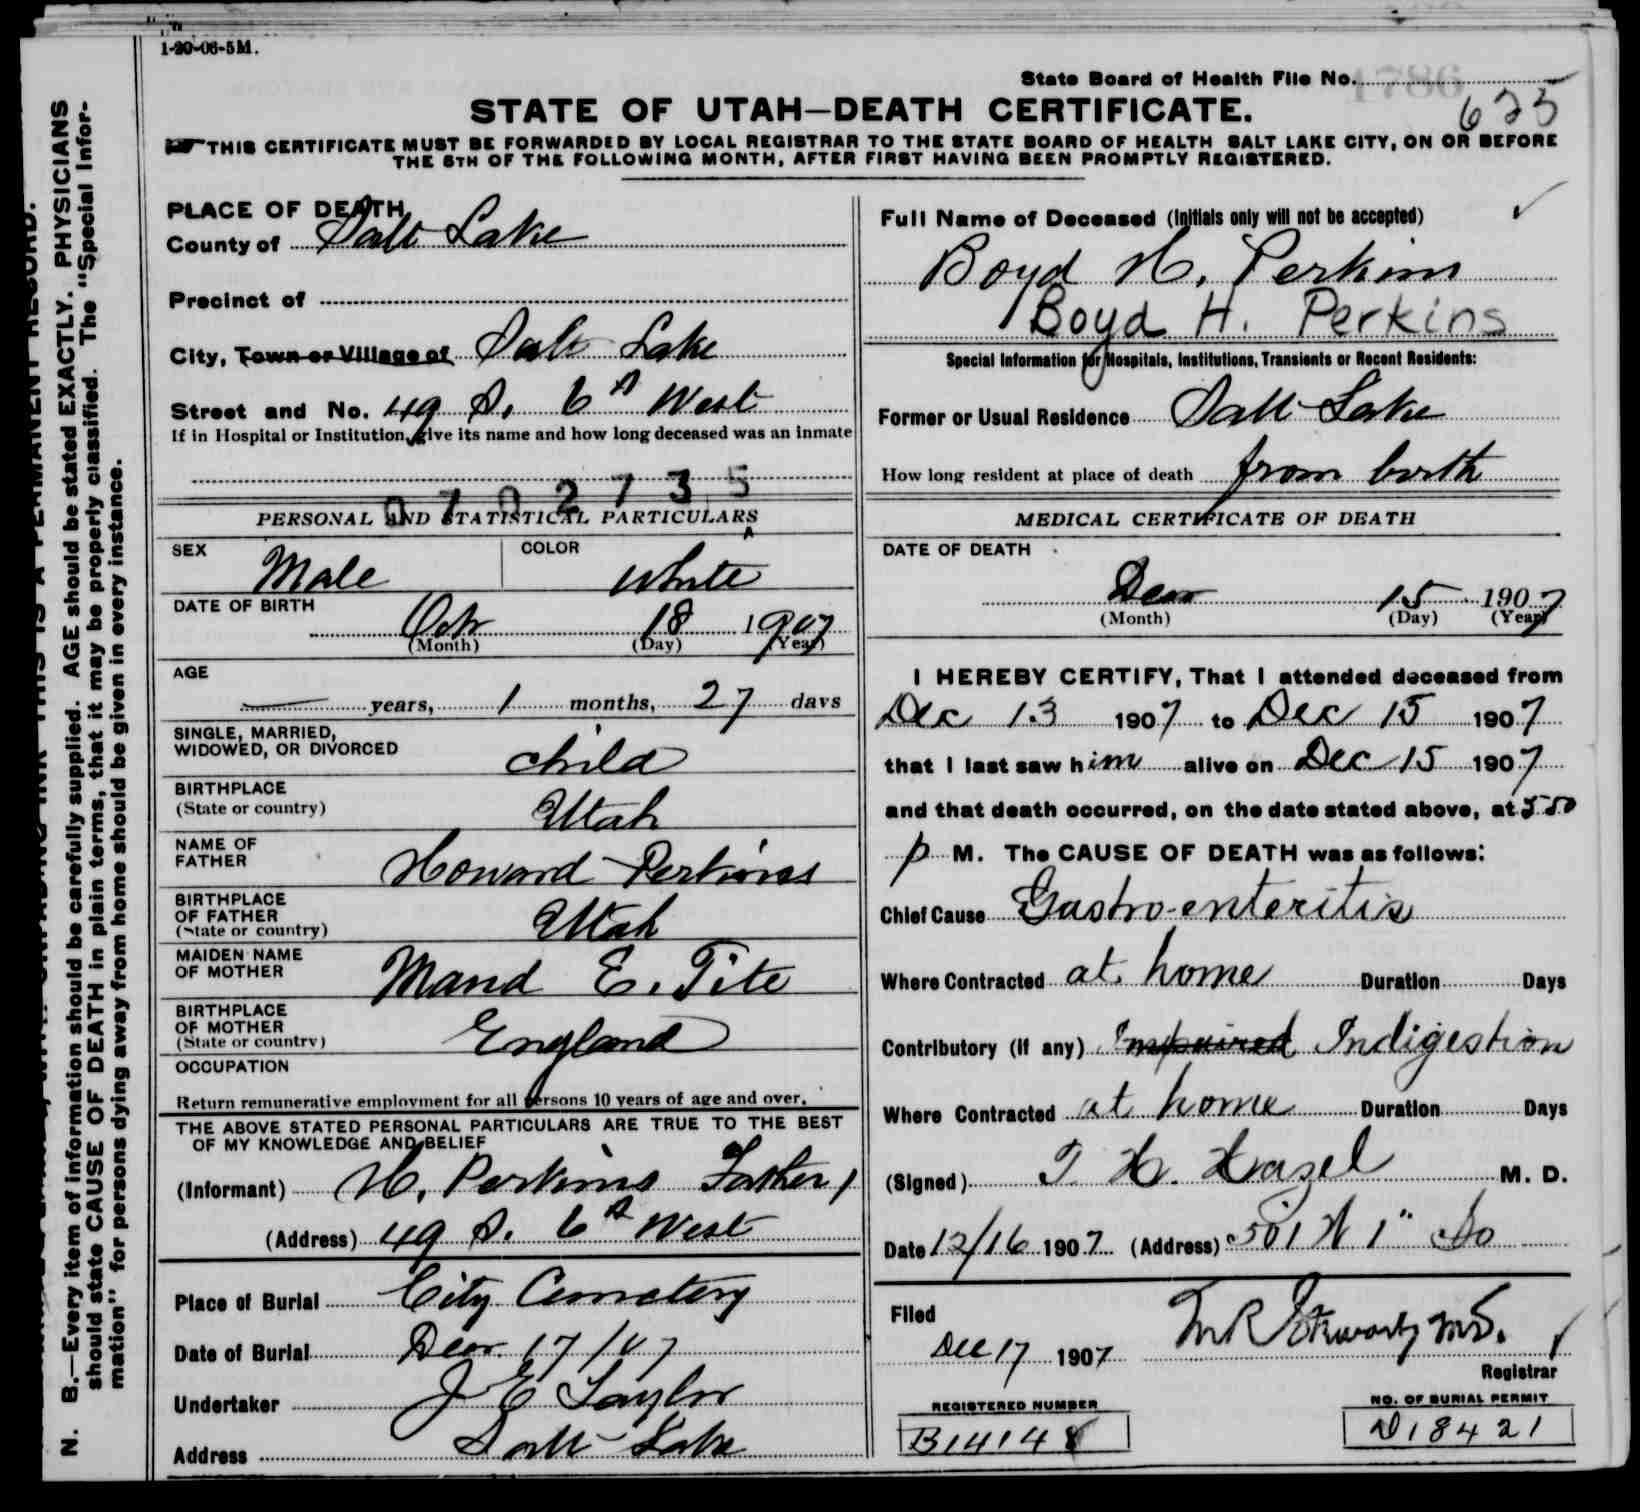 1-20-06-5M.
State Board of Health File No.
1786
625
STATE OF UTAH—DEATH CERTIFICATE.
THIS CERTIFICATE MUST BE FORWARDED BY LOCAL REGISTRAR TO THE STATE BOARD OF HEALTH SALT LAKE CITY, ON OR BEFORE
THE 5TH OF THE FOLLOWING MONTH, AFTER FIRST HAVING BEEN PROMPTLY REGISTERED.
PLACE OF DEATH
County of Salt Lake
Precinct of
City, Town or Village of Salt Lake
Street and No. 49 S. 6th West
If in Hospital or Institution, give its name and how long deceased was an inmate
0702735
PERSONAL AND STATISTICAL PARTICULARS
SEX Male COLOR White
DATE OF BIRTH
Octr 18 1907
(Month) (Day) (Year)
AGE
— years, 1 months, 27 days
SINGLE, MARRIED,
WIDOWED, OR DIVORCED child
BIRTHPLACE
(State or country) Utah
NAME OF
FATHER Howard Perkins
BIRTHPLACE
OF FATHER
(State or country) Utah
MAIDEN NAME
OF MOTHER Maud E. Tite
BIRTHPLACE
OF MOTHER
(State or country) England
OCCUPATION
Return remunerative employment for all persons 10 years of age and over.
THE ABOVE STATED PERSONAL PARTICULARS ARE TRUE TO THE BEST
OF MY KNOWLEDGE AND BELIEF
(Informant) H. Perkins Father)
(Address) 49 S. 6th West
Place of Burial City Cemetery
Date of Burial Decr. 17/07
Undertaker J E Taylor
Address Salt Lake
Full Name of Deceased (Initials only will not be accepted)
Boyd H. Perkins
Boyd H. Perkins
Special Information for Hospitals, Institutions, Transients or Recent Residents:
Former or Usual Residence Salt Lake
How long resident at place of death from birth
MEDICAL CERTIFICATE OF DEATH
DATE OF DEATH
Decr 15 1907
(Month) (Day) (Year)
I HEREBY CERTIFY, That I attended deceased from
Dec 13 1907 to Dec 15 1907
that I last saw him alive on Dec 15 1907
and that death occurred, on the date stated above, at 5.50
p M. The CAUSE OF DEATH was as follows:
Chief Cause Gastro-enteritis
Where Contracted at home Duration Days
Contributory (if any) Impaired Indigestion
Where Contracted at home Duration Days
(Signed) T. H. Hazel M. D.
Date 12/16 1907 (Address) 501 W 1" So
Filed
Dec 17 1907
Registrar
REGISTERED NUMBER
B14148
NO. OF BURIAL PERMIT
D18421
N. B.—Every item of information should be carefully supplied. AGE should be stated EXACTLY. PHYSICIANS
should state CAUSE OF DEATH in plain terms, that it may be properly classified. The "Special Infor-
mation" for persons dying away from home should be given in every instance.